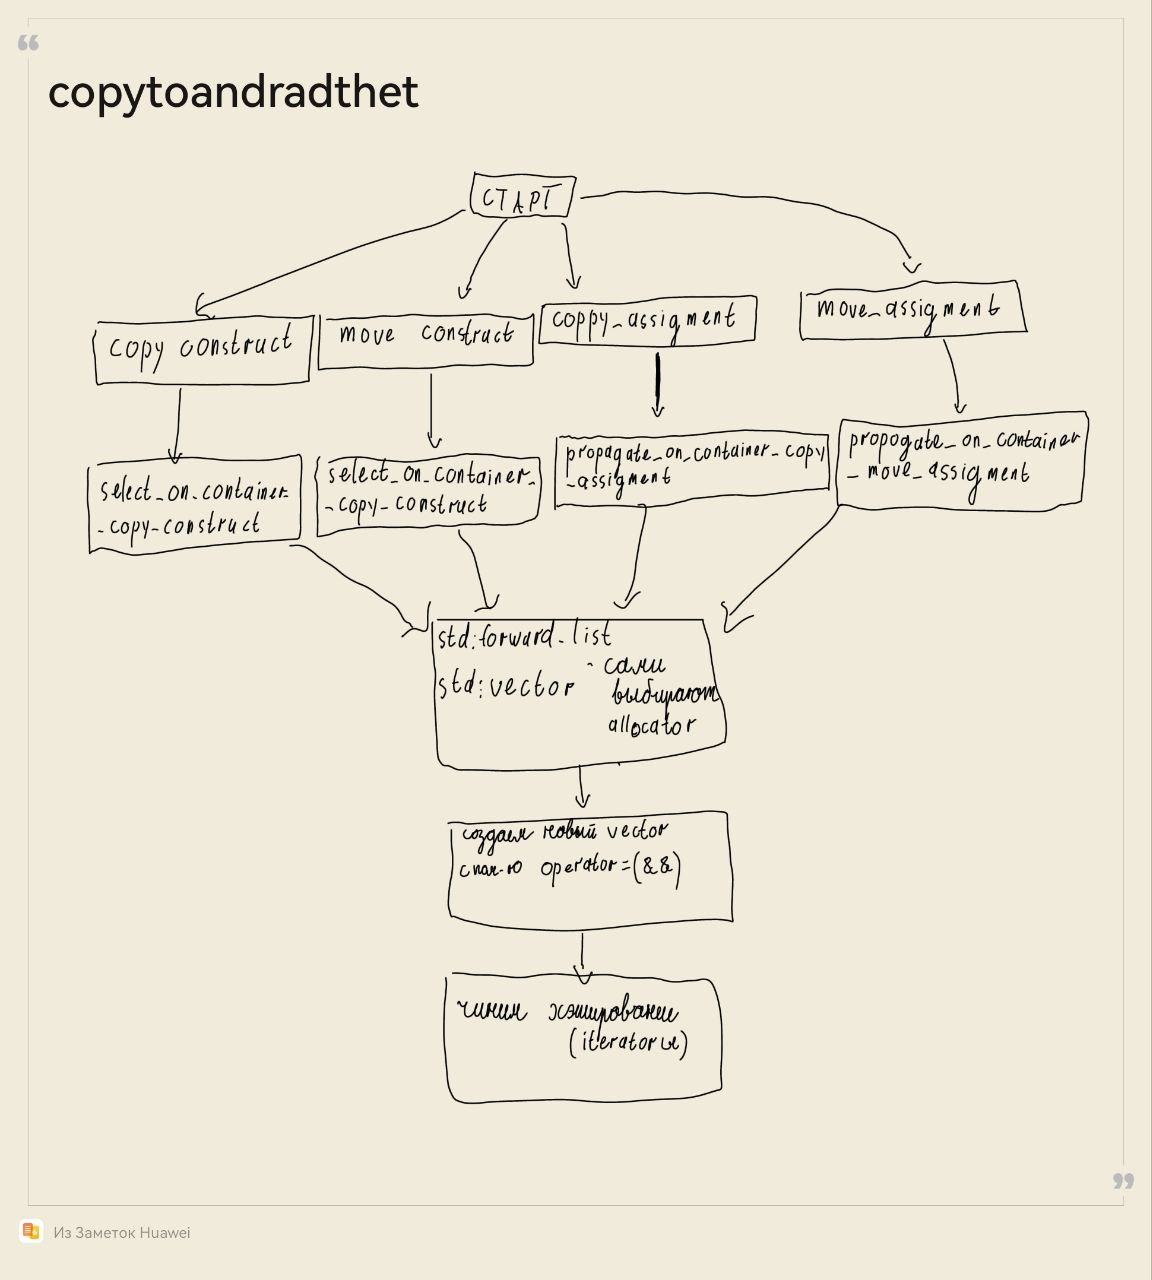 copytoandradthet
СТАРТ
copy construct
move construct
coppy_assigment
move_assigment
select_on_container_
_copy_construct
select_on_container_
_copy_construct
propagate_on_container_copy
_assigment
propogate_on_container
_move_assigment
std:forward_list
std:vector - сами
выбирают
allocator
создаем новый vector
с пом-ю operator=(&&)
чиним хэширование
(iteratorы)
Из Заметок Huawei